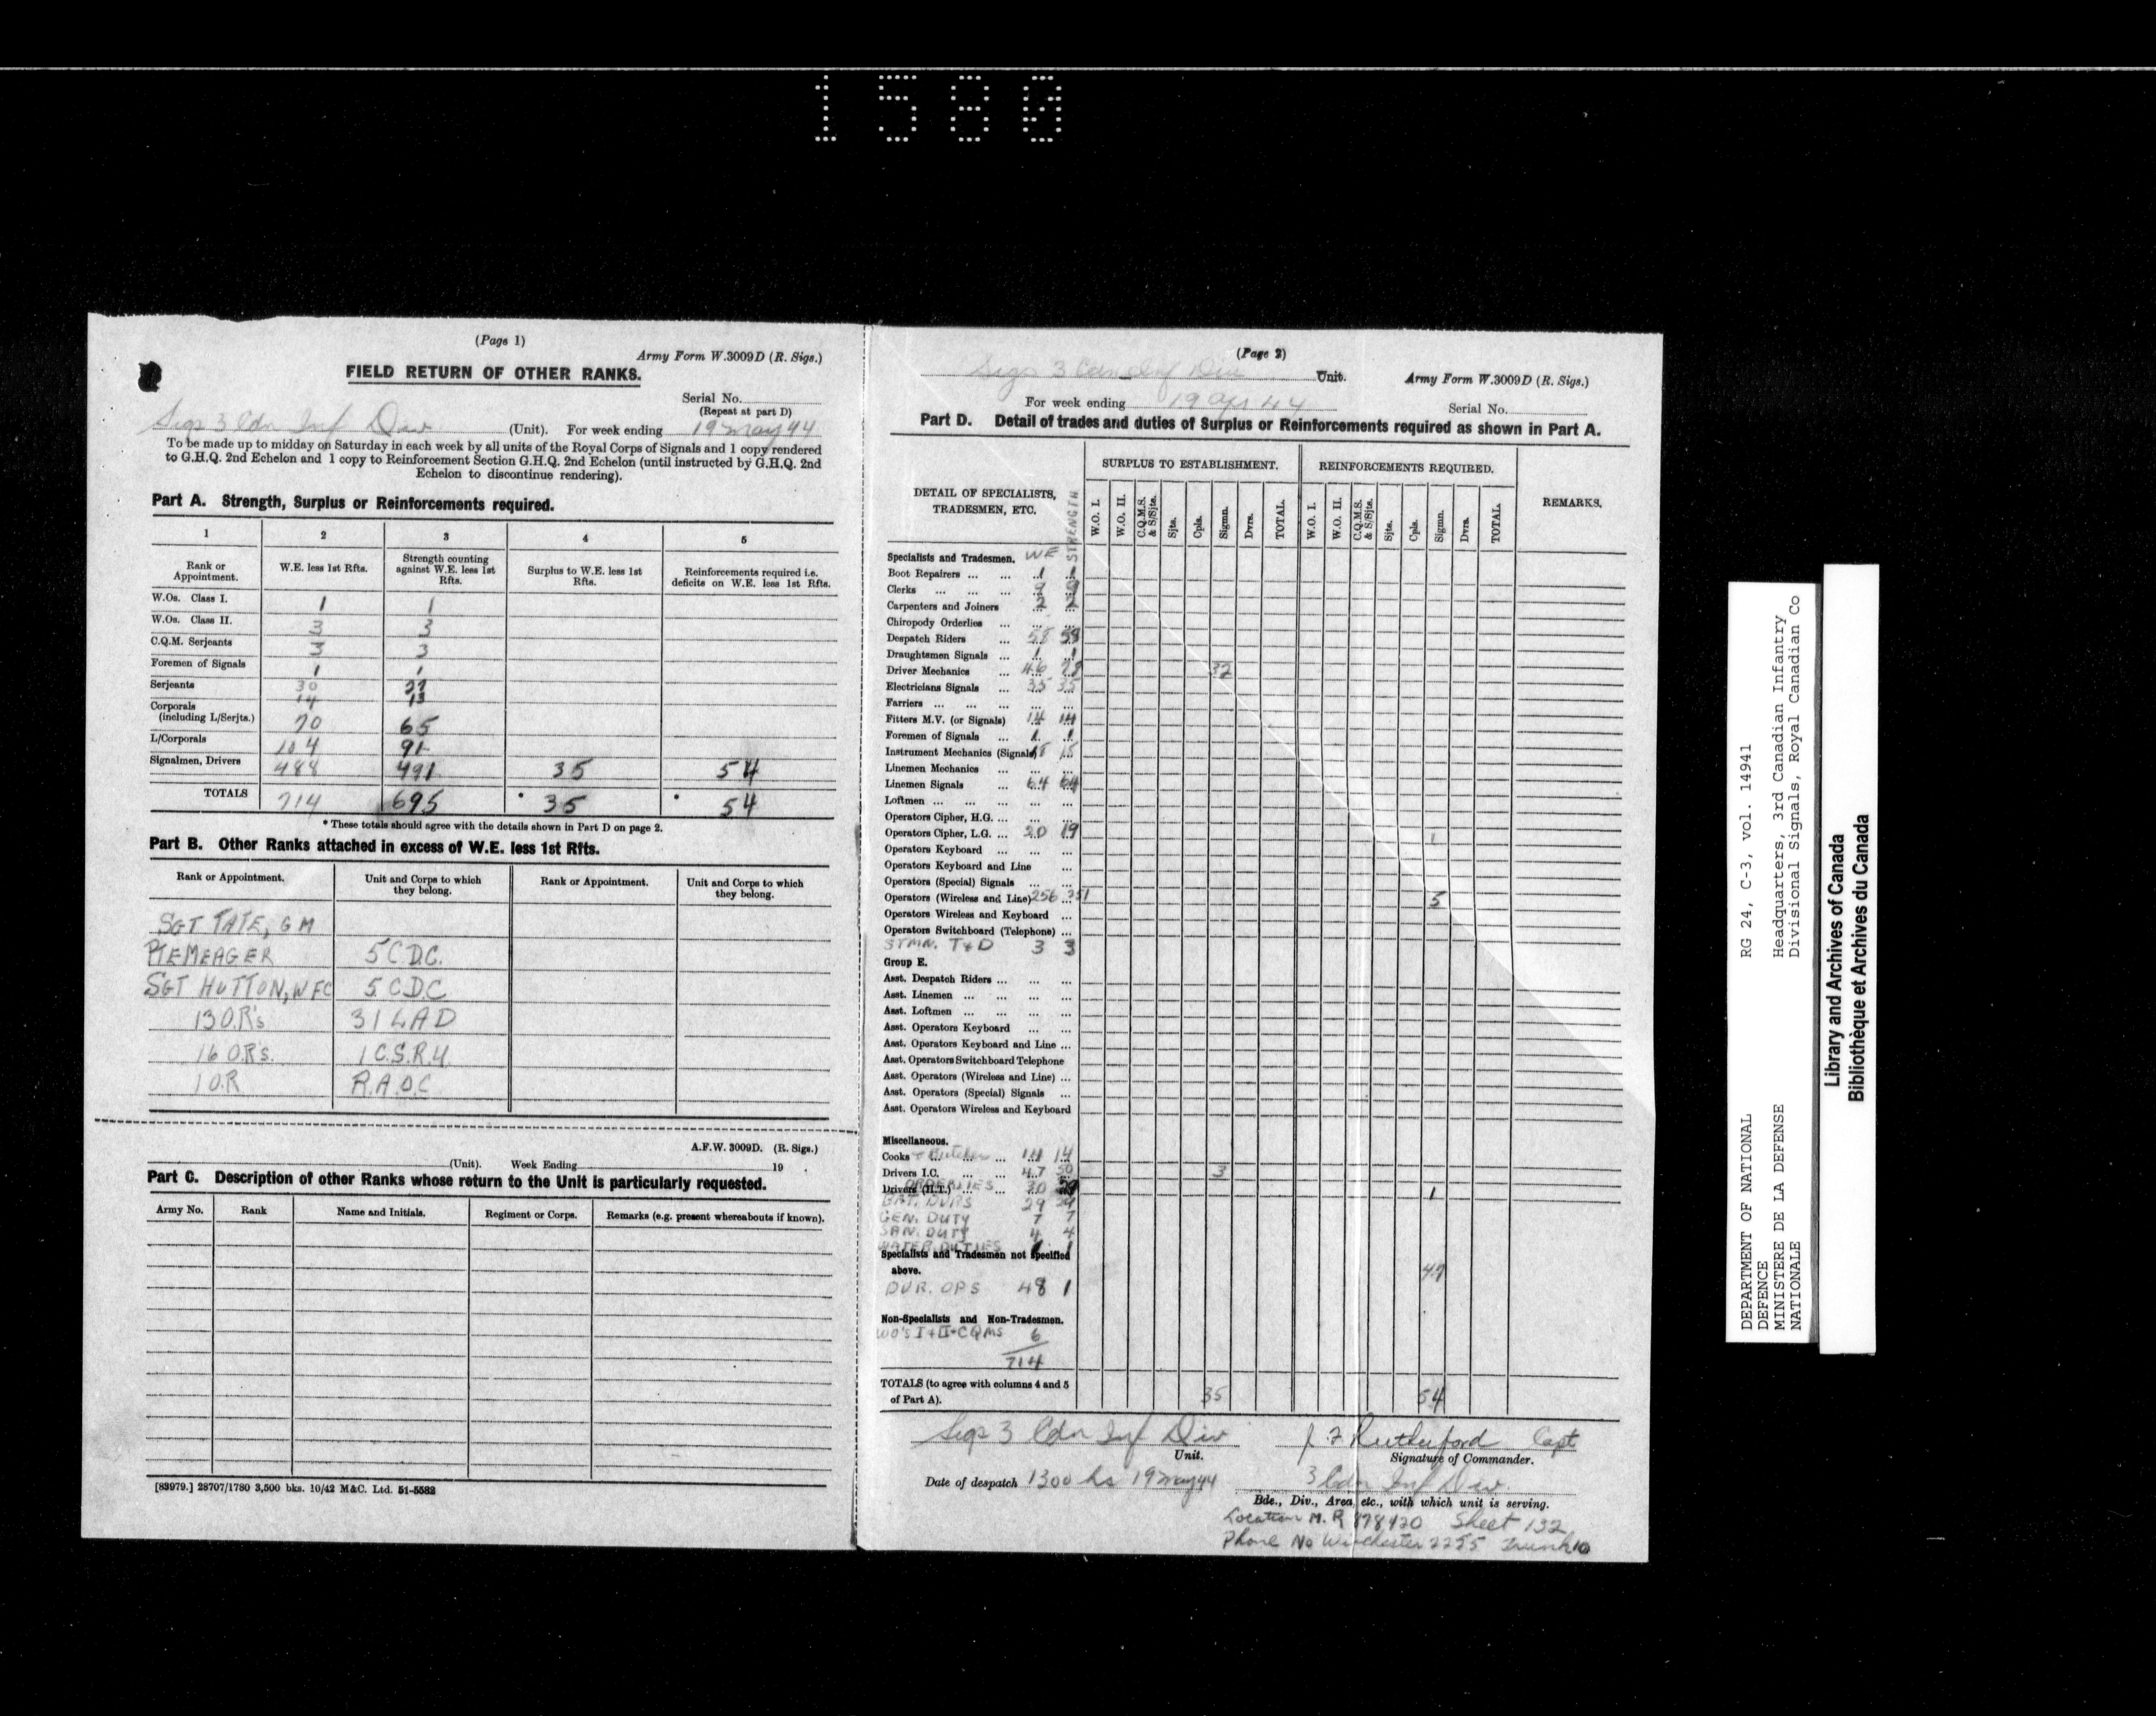 1580
(Page 1)
Army Form W.3009D (R. Sigs.)
FIELD RETURN OF OTHER RANKS.
Serial No.
(Repeat at part D)
Sigs 3 Cdn Inf Div (Unit). For week ending 19 May 44
To be made up to midday on Saturday in each week by all units of the Royal Corps of Signals and 1 copy rendered
to G.H.Q. 2nd Echelon and 1 copy to Reinforcement Section G.H.Q. 2nd Echelon (until instructed by G.H.Q. 2nd
Echelon to discontinue rendering).
Part A. Strength, Surplus or Reinforcements required.
1 2 3 4 5
Rank or Appointment. W.E. less 1st Rfts. Strength counting against W.E. less 1st Rfts. Surplus to W.E. less 1st Rfts. Reinforcements required i.e. deficits on W.E. less 1st Rfts.
W.Os. Class I. 1 1
W.Os. Class II. 3 3
C.Q.M. Serjeants 3 3
Foremen of Signals 1 1
Serjeants 30 27
14 13
Corporals
(including L/Serjts.) 70 65
L/Corporals 104 91
Signalmen, Drivers 488 491 35 54
TOTALS 714 695 * 35 * 54
* These totals should agree with the details shown in Part D on page 2.
Part B. Other Ranks attached in excess of W.E. less 1st Rfts.
Rank or Appointment. Unit and Corps to which they belong. Rank or Appointment. Unit and Corps to which they belong.
SGT TATE, G M
PTE MEAGER 5 C.D.C.
SGT HUTTON, W FC 5 C.D.C
13 O.R's 31 LAD
16 O.R's. 1 C.S.R.U.
1 O.R R.A.O.C
A.F.W. 3009D. (R. Sigs.)
(Unit). Week Ending 19
Part C. Description of other Ranks whose return to the Unit is particularly requested.
Army No. Rank Name and Initials. Regiment or Corps. Remarks (e.g. present whereabouts if known).
[83979.] 28707/1780 3,500 bks. 10/42 M&C. Ltd. 51-5582
(Page 2)
Sigs 3 Cdn Inf Div Unit. Army Form W.3009D (R. Sigs.)
For week ending 19 Apr 44 Serial No.
Part D. Detail of trades and duties of Surplus or Reinforcements required as shown in Part A.
DETAIL OF SPECIALISTS, TRADESMEN, ETC. STRENGTH SURPLUS TO ESTABLISHMENT. REINFORCEMENTS REQUIRED. REMARKS.
W.O. I. W.O. II. C.Q.M.S. & S/Sjts. Sjts. Cpls. Sigmn. Dvrs. TOTAL. W.O. I. W.O. II. C.Q.M.S. & S/Sjts. Sjts. Cpls. Sigmn. Dvrs. TOTAL.
Specialists and Tradesmen. WE
Boot Repairers ... ... 1 1
Clerks ... ... ...
Carpenters and Joiners 2 2
Chiropody Orderlies ...
Despatch Riders ... 58 58
Draughtsmen Signals ... 1 1
Driver Mechanics ... 46 78 32
Electricians Signals ... 35 35
Farriers ... ... ...
Fitters M.V. (or Signals) 14 14
Foremen of Signals ... 1 1
Instrument Mechanics (Signals) 15
Linemen Mechanics ...
Linemen Signals ... 64 64
Loftmen ... ... ...
Operators Cipher, H.G. ...
Operators Cipher, L.G. ... 20 19 1
Operators Keyboard ...
Operators Keyboard and Line
Operators (Special) Signals ...
Operators (Wireless and Line) 256 251 5
Operators Wireless and Keyboard ...
Operators Switchboard (Telephone) ...
STMN. T & D 3 3
Group E.
Asst. Despatch Riders ...
Asst. Linemen ...
Asst. Loftmen ...
Asst. Operators Keyboard ...
Asst. Operators Keyboard and Line ...
Asst. Operators Switchboard Telephone
Asst. Operators (Wireless and Line) ...
Asst. Operators (Special) Signals ...
Asst. Operators Wireless and Keyboard
Miscellaneous.
Cooks + Butcher ... 14 14
Drivers I.C. ... 47 50 3
Drivers (H.T.) ... ORDERLIES 30 29 1
BAT. DVRS 29 29
GEN. DUTY 7 7
SAN. DUTY 4 4
WATER DUTIES 1 1
Specialists and Tradesmen not specified
above. 47
DVR. OPS 48 1
Non-Specialists and Non-Tradesmen.
WO'S I + II + CQMS 6
714
TOTALS (to agree with columns 4 and 5
of Part A). 35 54
Sigs 3 Cdn Inf Div J F Rutherford Capt
Unit. Signature of Commander.
Date of despatch 1300 hs 19 May 44 3 Cdn Inf Div.
Bde., Div., Area, etc., with which unit is serving.
Location M. R 878420 Sheet 132
Phone No Winchester 2255 Trunk 10
DEPARTMENT OF NATIONAL DEFENCE
MINISTERE DE LA DEFENSE NATIONALE
RG 24, C-3, vol. 14941
Headquarters, 3rd Canadian Infantry
Divisional Signals, Royal Canadian Co
Library and Archives of Canada
Bibliothèque et Archives du Canada